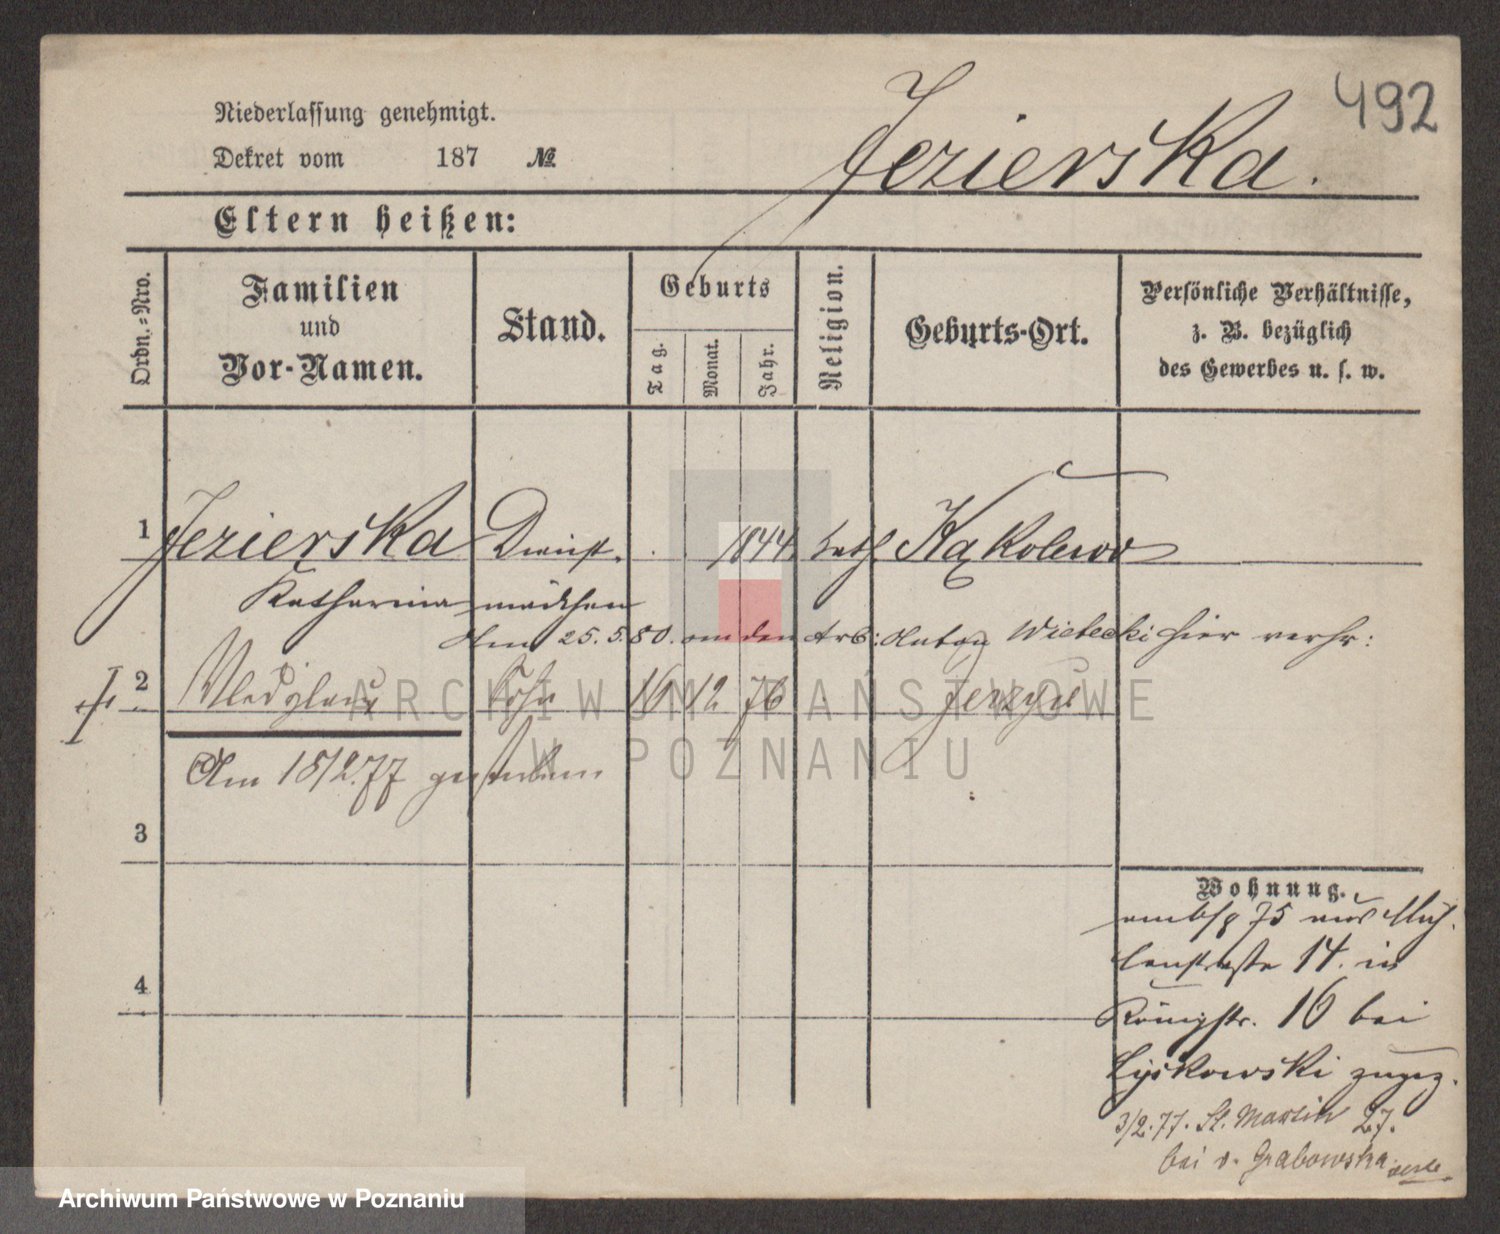 492
Niederlassung genehmigt.
Dekret vom 187 №
Jezierska.
Eltern heißen:
Ordn.-Nro.
Familien
und
Vor-Namen.
Stand.
Geburts
Tag.
Monat.
Jahr.
Religion.
Geburts-Ort.
Persönliche Verhältnisse,
z. B. bezüglich
des Gewerbes u. s. w.
1 Jezierska Dienst 1844 kath. Kąkolewo
Katharina mädchen
Am 25.5.80. an den Arb: Anton Wiebecki hier verh:
2 Wladyslaus Sohn 16 12 76 Jerzyce
Am 18/2.77 gestorben
3
4
Wohnung.
75 aus Müh
lenstraße 14. in
Königstr. 16 bei
Lyskowski zugez.
3/2.77. St. Martin 27.
bei v. Grabowska
ARCHIWUM PAŃSTWOWE
W POZNANIU
Archiwum Państwowe w Poznaniu